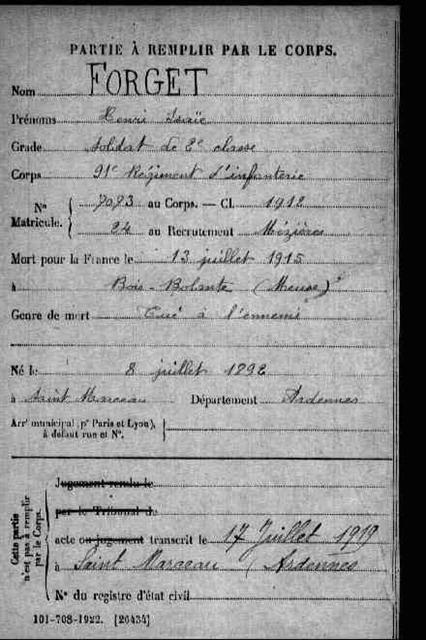 PARTIE À REMPLIR PAR LE CORPS.
Nom FORGET
Prénoms Henri Isaïe
Grade Soldat de 2e classe
Corps 91e Régiment d'infanterie
No Matricule. 7023 au Corps. — Cl. 1912
24 au Recrutement Mézières
Mort pour la France le 13 juillet 1915
à Bois-Bolante (Meuse)
Genre de mort Tué à l'ennemi
Né le 8 juillet 1892
à Saint Marceau Département Ardennes
Arrt municipal (pr Paris et Lyon),
à défaut rue et N°.
Cette partie n'est pas à remplir par le Corps.
Jugement rendu le
par le Tribunal de
acte ou jugement transcrit le 17 Juillet 1919
à Saint Marceau (Ardennes
N° du registre d'état civil
101-708-1922. [26434]